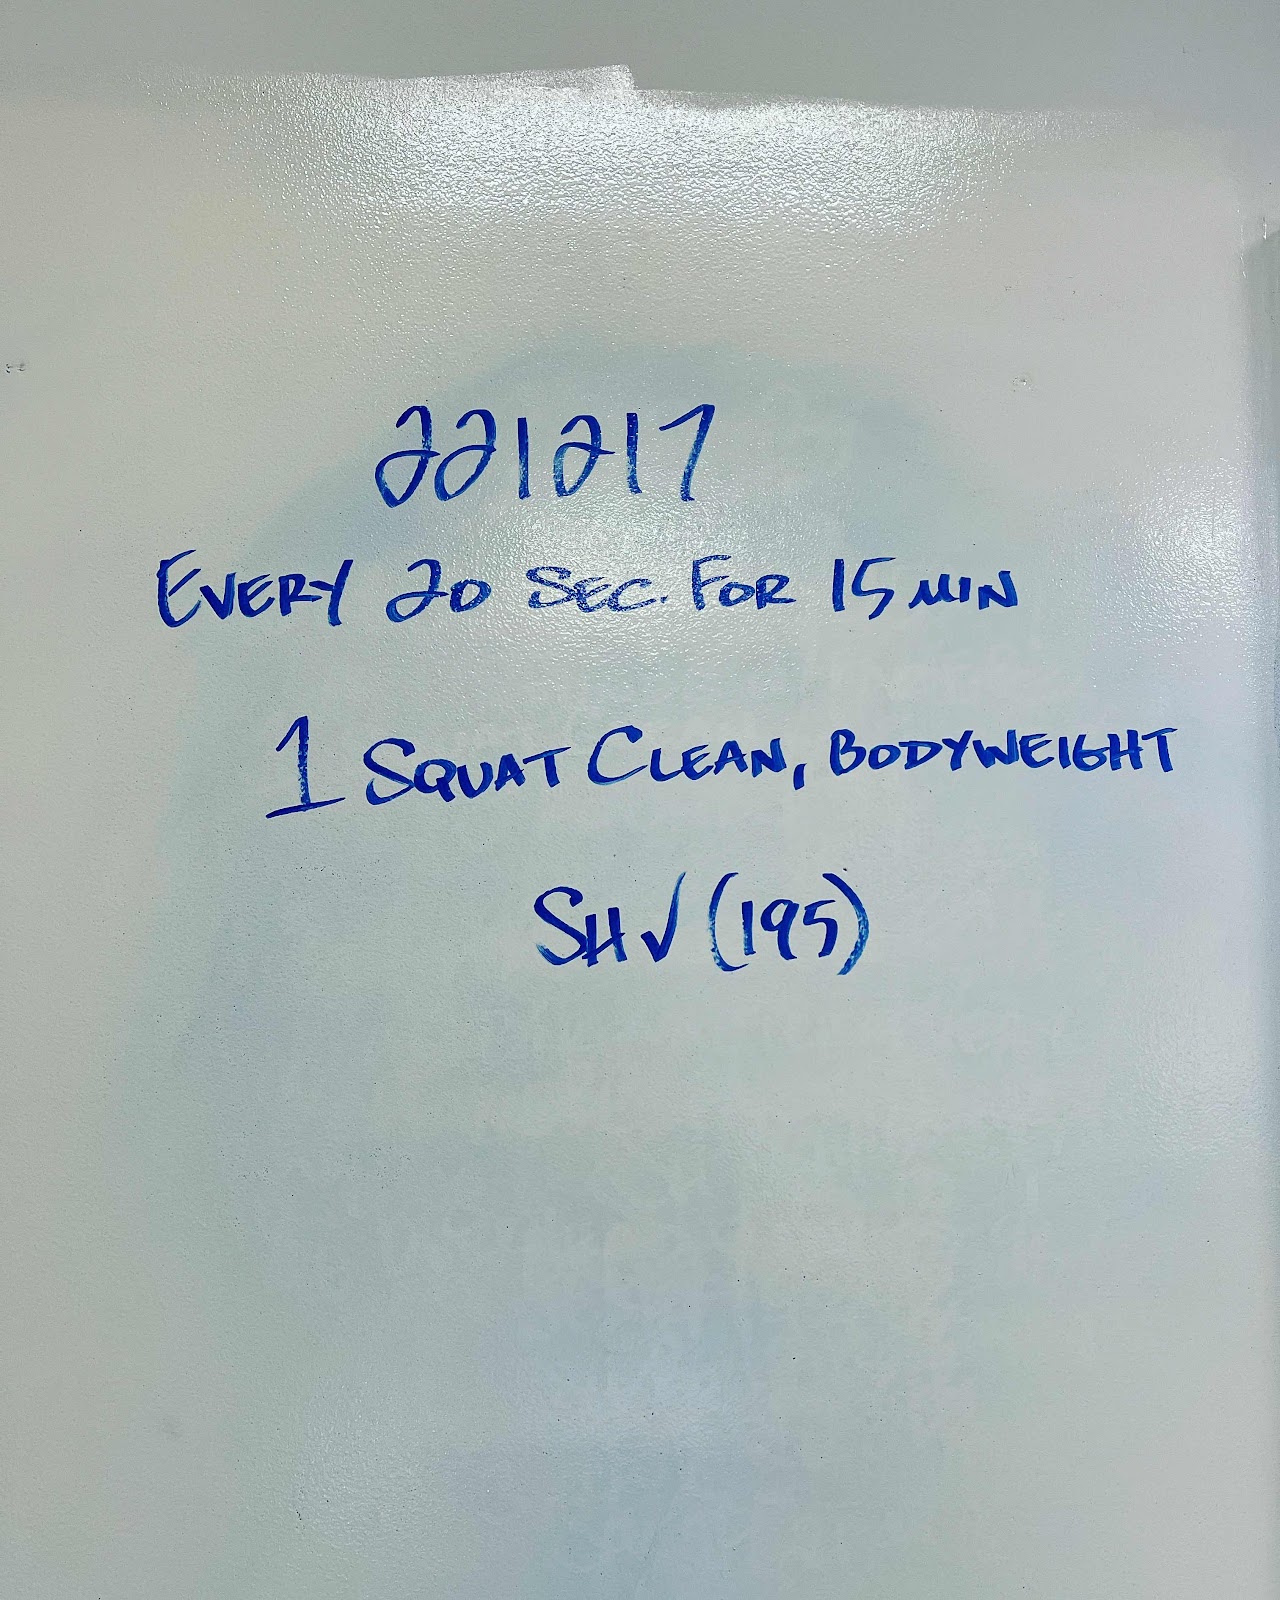 221217
EVERY 20 SEC. FOR 15 MIN
1 SQUAT CLEAN, BODYWEIGHT
SH✓ (195)